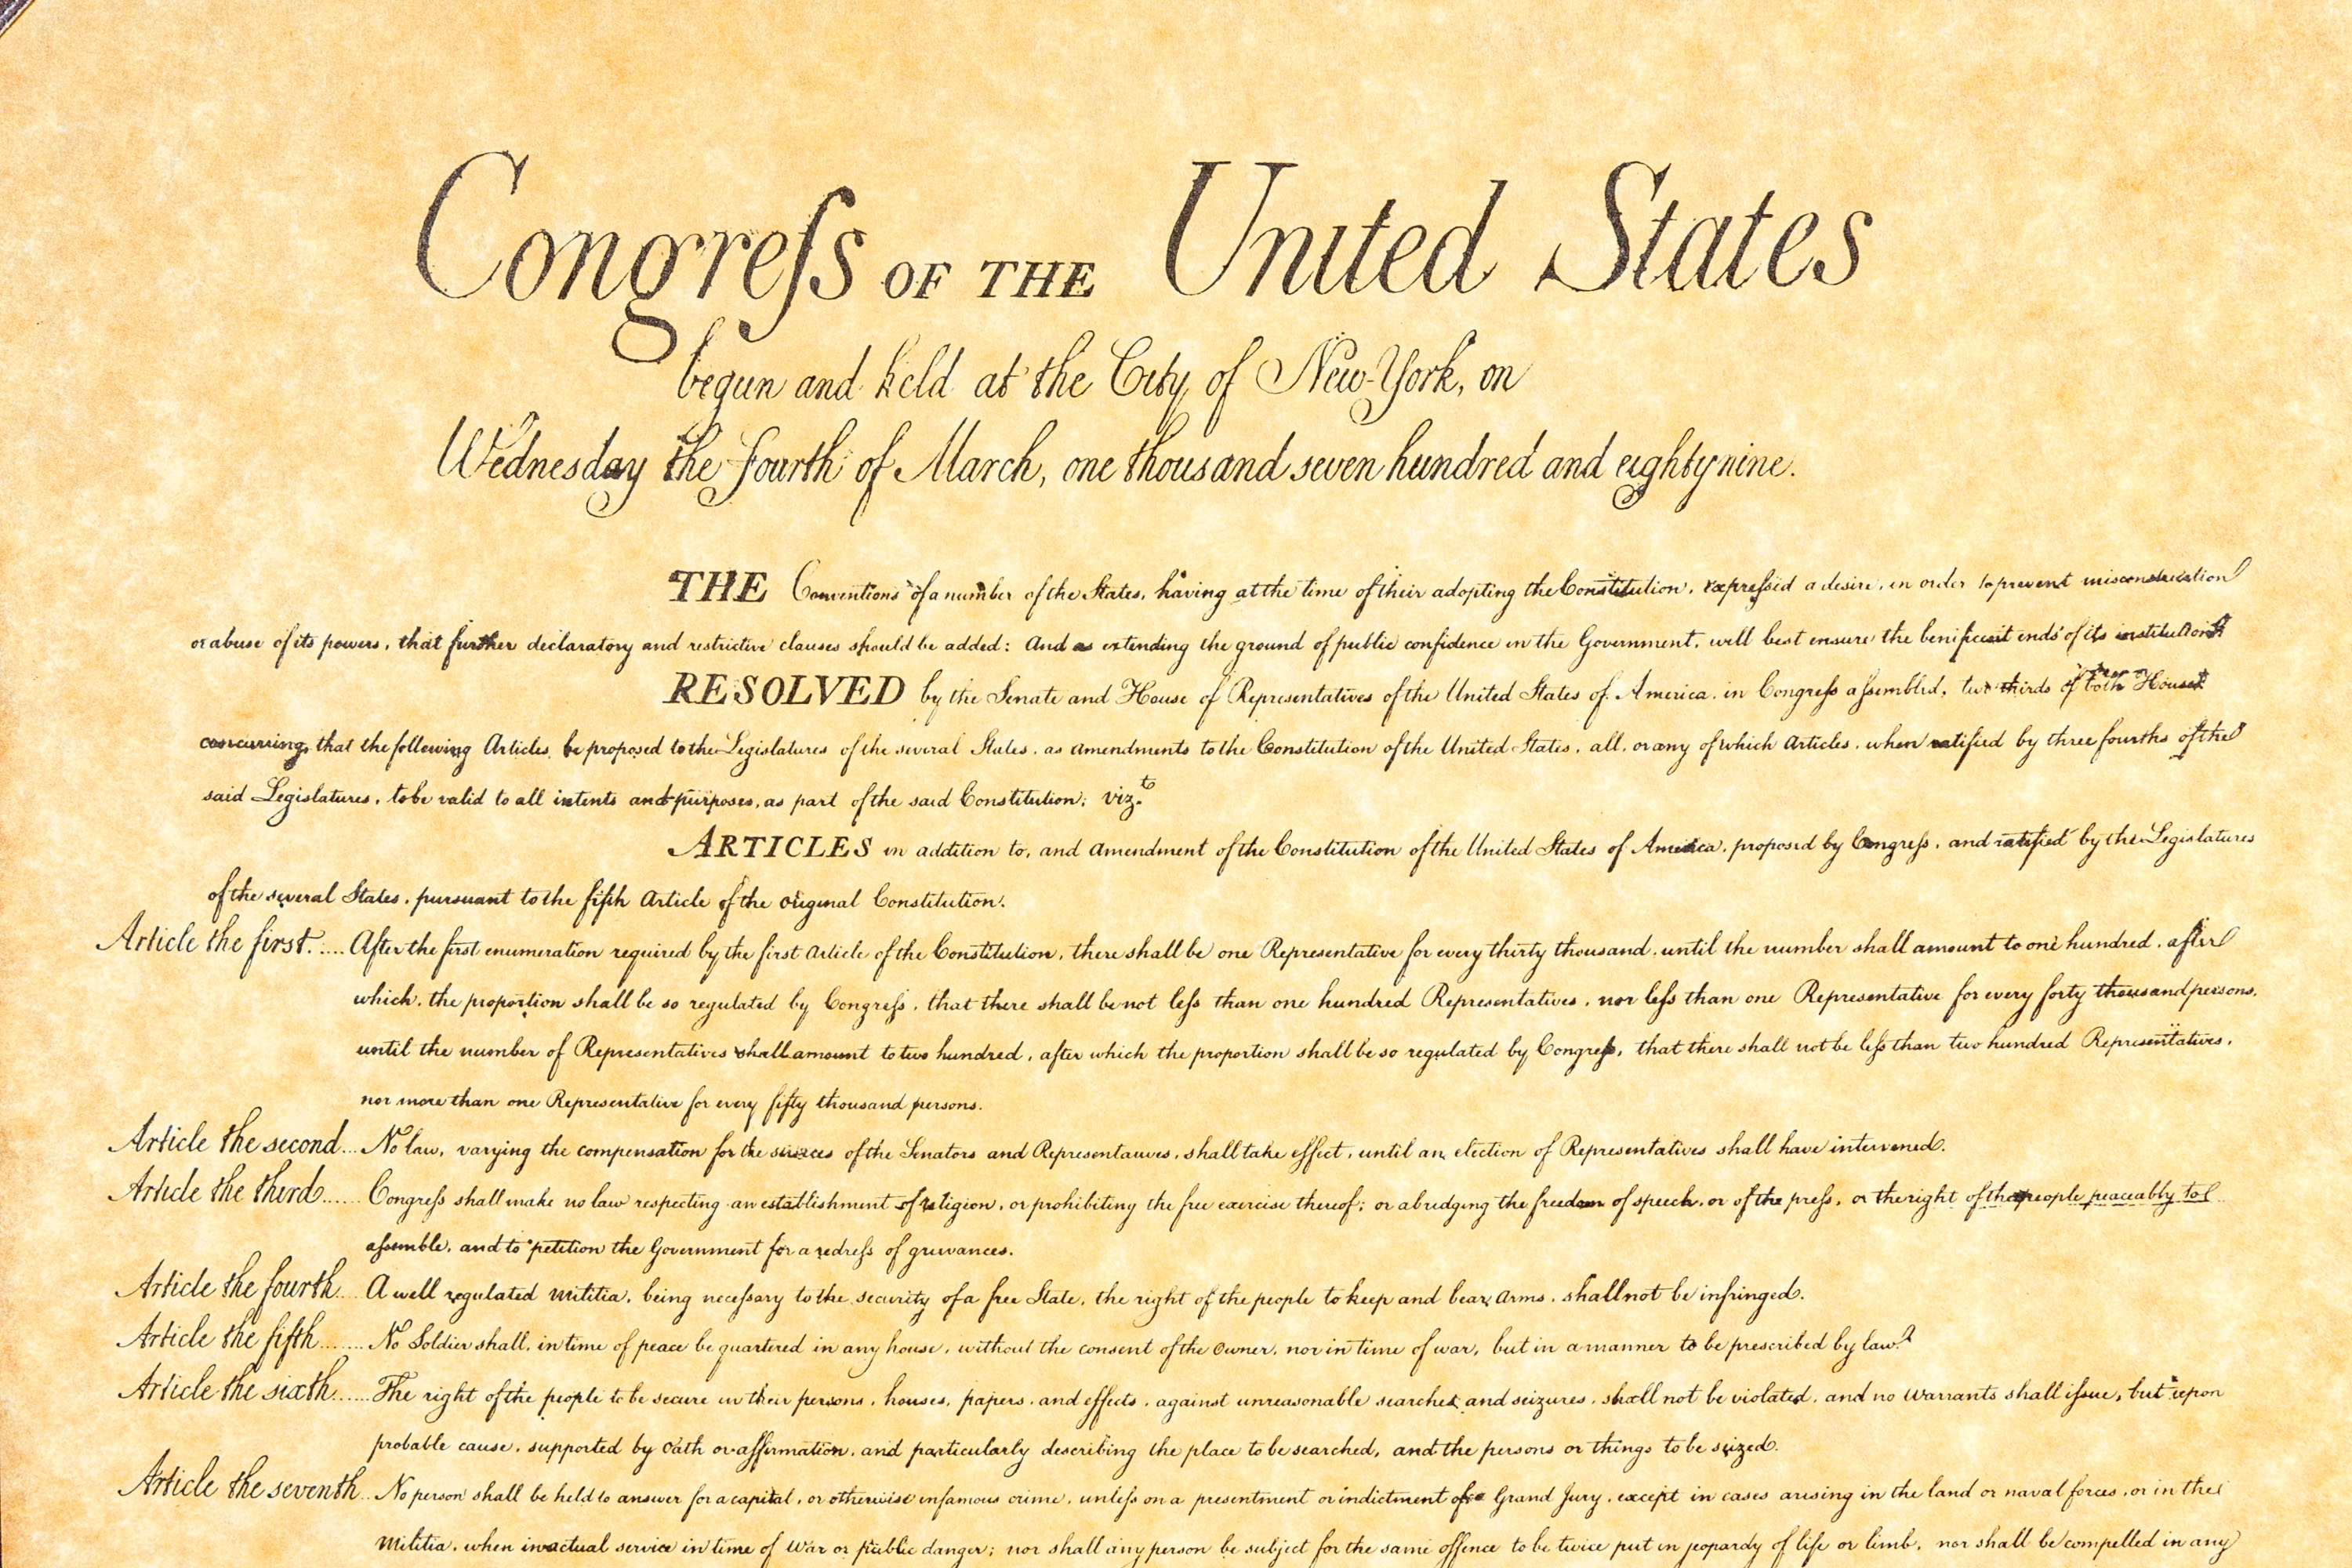 Congreſs OF THE United States
begun and held at the City of New-York, on
Wednesday the fourth of March, one thousand seven hundred and eighty nine.
THE Conventions of a number of the States, having at the time of their adopting the Constitution, expreſsed a desire, in order to prevent misconstruction
or abuse of its powers, that further declaratory and restrictive clauses should be added: And as extending the ground of public confidence in the Government, will best ensure the benificent ends of its institution
RESOLVED by the Senate and House of Representatives of the United States of America, in Congreſs aſsembled, two thirds of both Houses
concurring, that the following Articles be proposed to the Legislatures of the several States, as amendments to the Constitution of the United States, all, or any of which Articles, when ratified by three fourths of the
said Legislatures, to be valid to all intents and purposes, as part of the said Constitution; viz.t
ARTICLES in addition to, and amendment of the Constitution of the United States of America, proposed by Congreſs, and ratified by the Legislatures
of the several States, pursuant to the fifth Article of the original Constitution.
Article the first..... After the first enumeration required by the first Article of the Constitution, there shall be one Representative for every thirty thousand, until the number shall amount to one hundred, after
which, the proportion shall be so regulated by Congreſs, that there shall be not leſs than one hundred Representatives, nor leſs than one Representative for every forty thousand persons,
until the number of Representatives shall amount to two hundred, after which the proportion shall be so regulated by Congreſs, that there shall not be leſs than two hundred Representatives,
nor more than one Representative for every fifty thousand persons.
Article the second... No law, varying the compensation for the services of the Senators and Representatives, shall take effect, until an election of Representatives shall have intervened.
Article the third...... Congreſs shall make no law respecting an establishment of religion, or prohibiting the free exercise thereof; or abridging the freedom of speech, or of the preſs, or the right of the people peaceably to
aſsemble, and to petition the Government for a redreſs of grievances.
Article the fourth.... A well regulated militia, being neceſsary to the security of a free State, the right of the people to keep and bear arms, shall not be infringed.
Article the fifth....... No Soldier shall, in time of peace be quartered in any house, without the consent of the owner, nor in time of war, but in a manner to be prescribed by law.
Article the sixth...... The right of the people to be secure in their persons, houses, papers, and effects, against unreasonable searches and seizures, shall not be violated, and no warrants shall iſsue, but upon
probable cause, supported by oath or affirmation, and particularly describing the place to be searched, and the persons or things to be seized.
Article the seventh... No person shall be held to answer for a capital, or otherwise infamous crime, unleſs on a presentment or indictment of a Grand Jury, except in cases arising in the land or naval forces, or in the
Militia, when in actual service in time of War or public danger; nor shall any person be subject for the same offence to be twice put in jeopardy of life or limb, nor shall be compelled in any